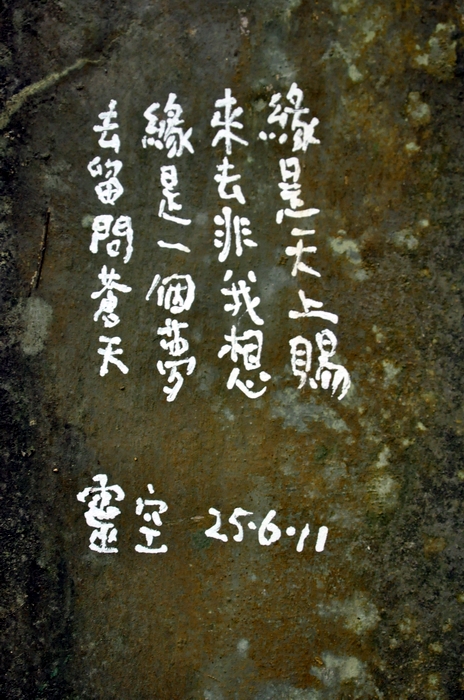 緣是天上賜
來去非我想
緣是一個夢
去留問蒼天
空靈 25·6·11